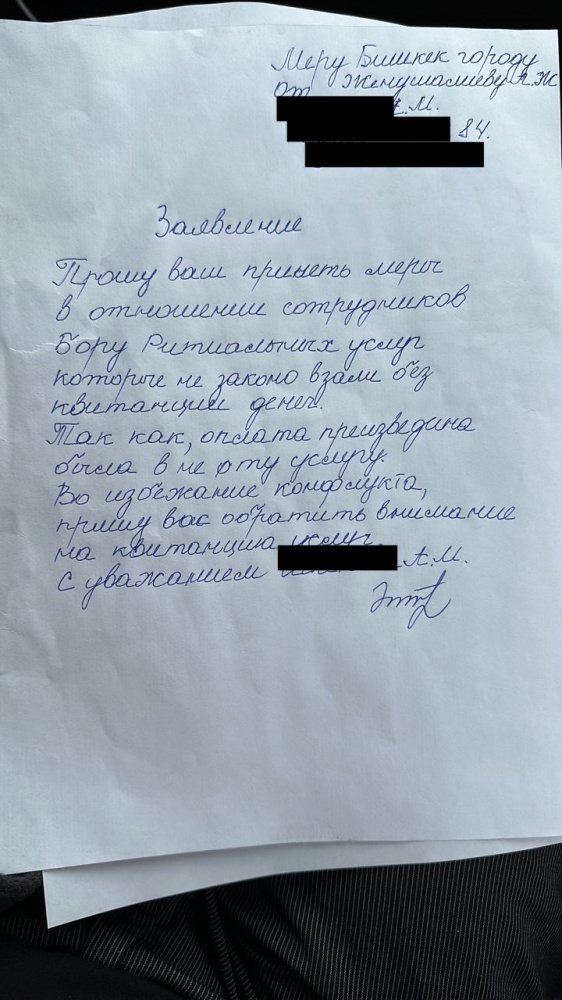 Меру Бишкек городу
от Женушалиеву А.Ж
А.М.
84.
Заявление
Прошу ваш принеть меры
в отношении сотрудников
Бору Ритиальных услуг
которые не законо взали без
квитанции денег.
Так как, оплата преизведина
была в не эту услугу.
Во избежание конфлукта,
пришу вас обратить внимание
на квитанцию услуг.
С уважанием А.М.